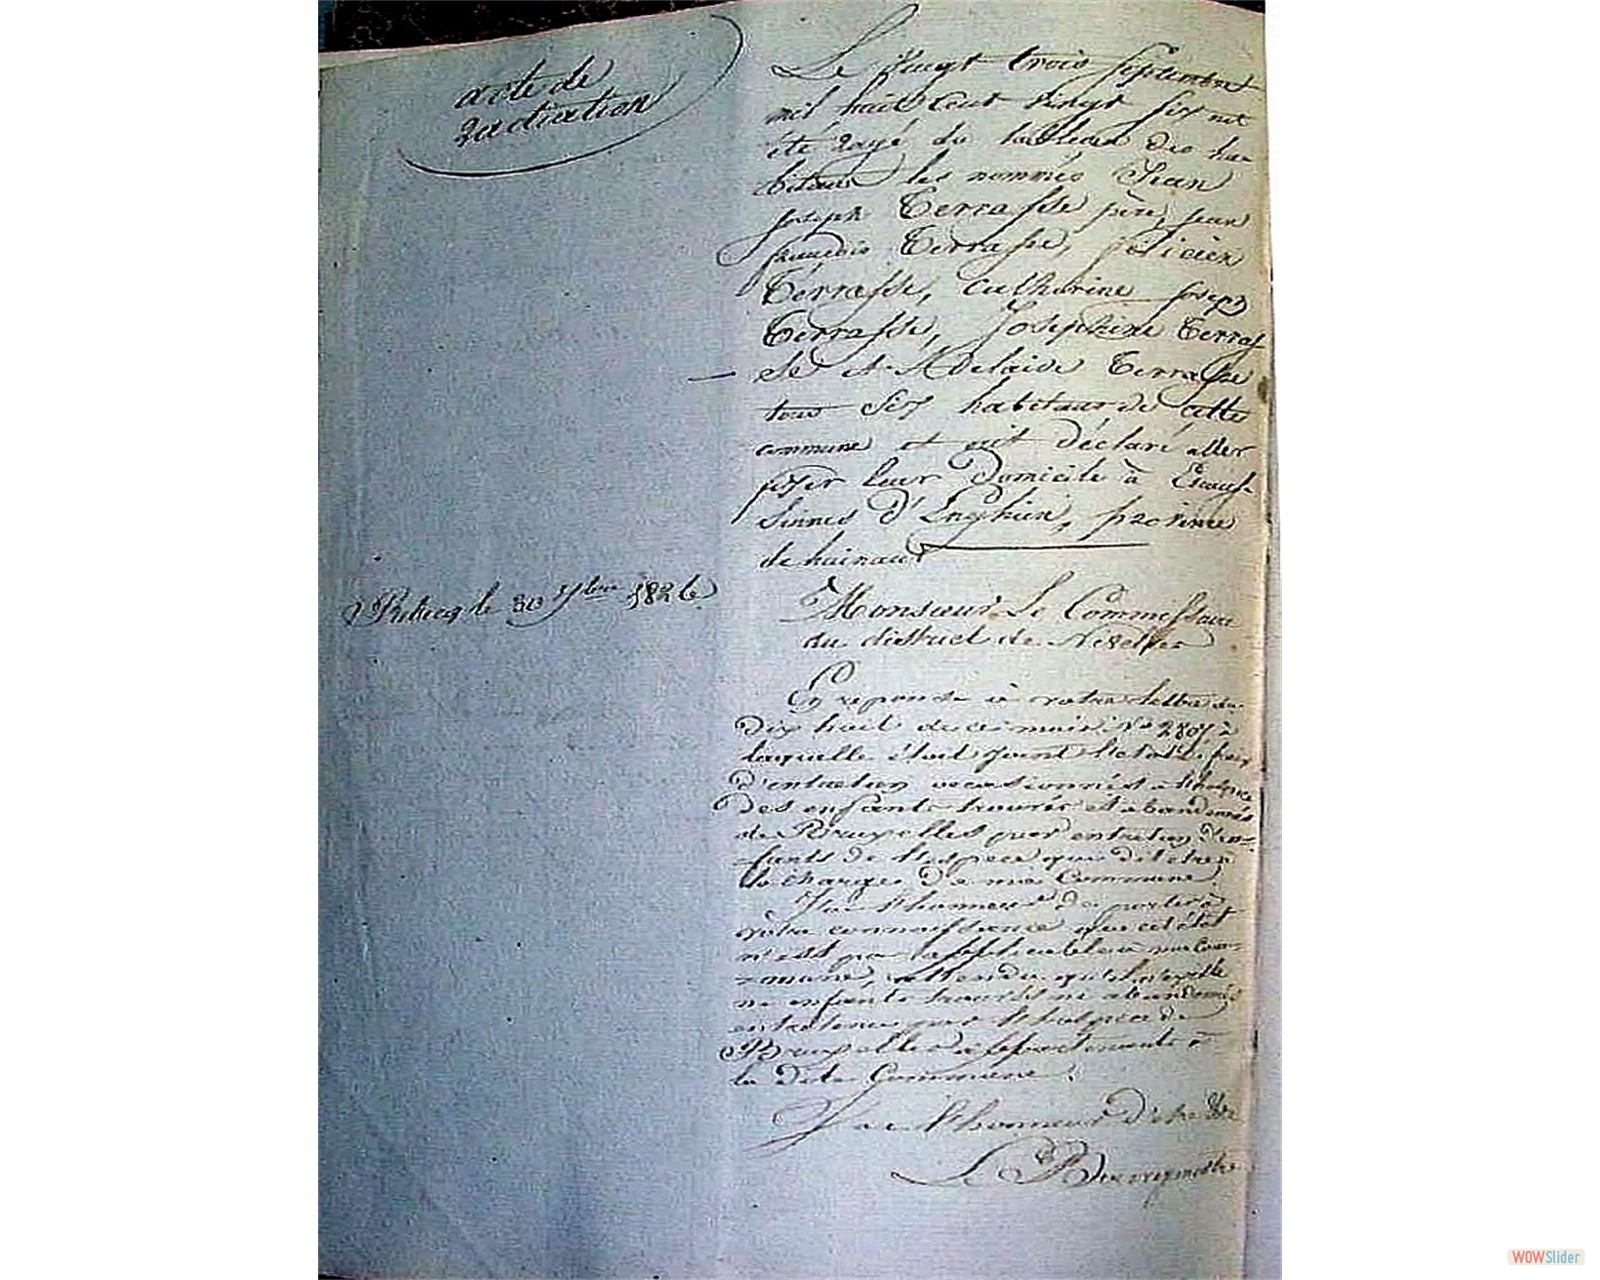 acte de
radiation
Le vingt trois septembre
mil huit cent vingt six ont
été rayé du tableau des ha-
bitans les nommés Jean
joseph Terrasse père, jean
françois Terrasse, felicien
Terrasse, Catherine joseph
Terrasse, Josephine Terras
se et Adelaide Terrasse
tous six habitans de cette
commune et ont déclaré aller
fixer leur Domicile à Ecaus-
sinnes d'Enghien, province
de hainaut
Rebecq le 30 7bre 1826
Monsieur Le Commissaire
du district de Nivelles
En reponse à votre lettre du
dix huit de ce mois N° 2807 à
laquelle était joint l'etat de frais
d'entretien occasionnés à l'hospice
des enfants trouvés et abandonnés
de Bruxelles pour entretien d'en-
fants de l'hospice qui doit être à
la charge de ma Commune.
J'ai l'honneur de porter à
votre connaissance que cet état
n'est pas applicable à ma Com-
mune, attendu qu'il n'existe
ne enfants trouvés ne abandonnés
entretenus par l'hospice de
Bruxelles appartenants à
la dite Commune.
J'ai l'honneur d'être
Le Bourgmestre
WOWSlider